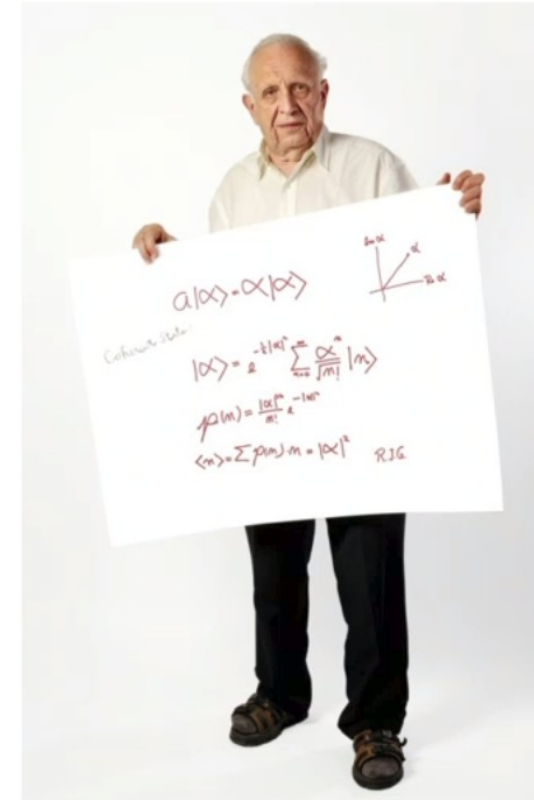 Im α
α
Re α
a|α⟩=α|α⟩
Coherent States
|α⟩ = e^{-½|α|²} ∑_{n=0}^{∞} α^n/√n! |n⟩
p(n) = |α|^{2n}/n! e^{-|α|²}
⟨n⟩=∑p(n)·n=|α|² RJG